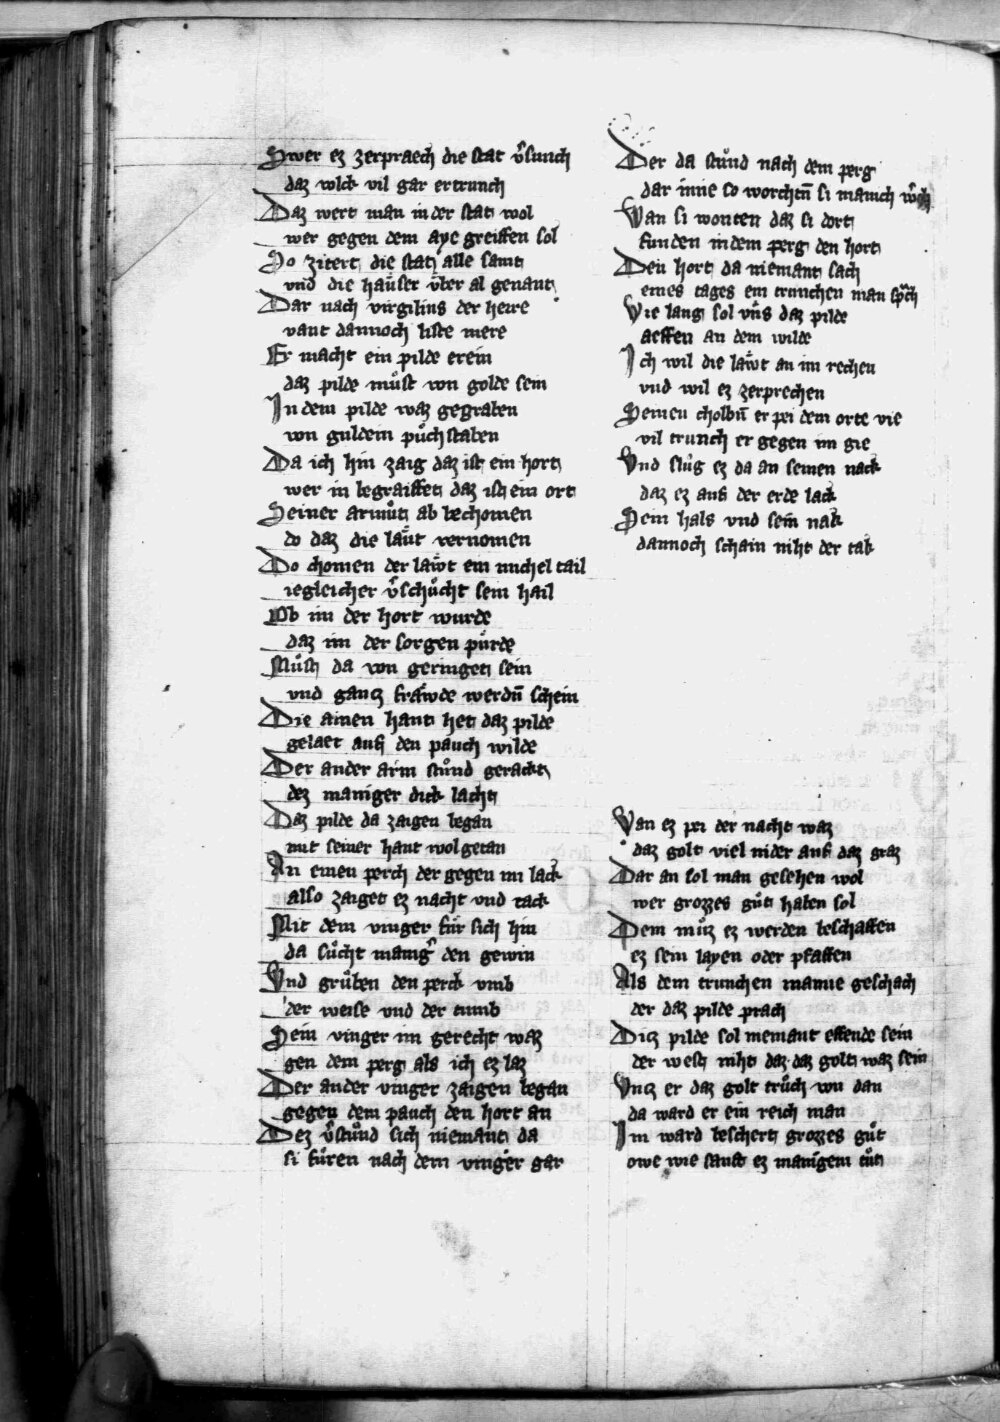 Swer ez zerpraech die stat v̾sunch
daz volck vil gar ertrunch
Daz wert man in der stat wol
wer gegen dem aye greiffen sol
So zitert die stat alle samt
vnd die haüser v̈ber al genant
Dar nach virgilius der herre
vant dannoch liste mere
Er macht ein pilde erein
daz pilde můst von golde sein
In dem pilde waz gegraben
von guldein půchstaben
Da ich hin zaig daz ist ein hort
wer in begraiffet daz ist ein ort
Seiner armůt ab bechomen
do daz die laẅt vernomen
Do chomen der laẅt ein michel tail
iegleicher v̾schůcht sein hail
Ob im der hort wurde
daz im der sorgen pürde
Můst da von geringet sein
vnd gancz fraẅde werdn̄ schein
Die ainen hant het daz pilde
gelaet auf den pauch wilde
Der ander arm stůnd gerackt
dez maniger dick lacht
Daz pilde da zaigen began
mit seiner hant wolgetan
An einen perch der gegen im lack
also zaiget ez nacht vnd tack
Mit dem vinger für sich hin
da sůcht manig̾ den gewin
Vnd grůben den perck vmb
der weise vnd der tumb
Sein vinger im gerecht waz
gen dem perg als ich ez laz
Der ander vinger zaigen began
gegen dem pauch den hort an
Dez v̾stůnd sich niemant da
si fůren nach dem vinger gar
Der da stůnd nach dem perg
dar inne so worchtn̄ si manich w̾ch
Wan si wonten daz si dort
funden in dem perg den hort
Den hort da niemant sach
eines tages ein trunchen man sp̾ch
Wie lang sol vns daz pilde
aeffen an dem wilde
Ich wil die laẅt an im rechen
vnd wil ez zerprechen
Seinen cholbn̄ er pei dem orte vie
vil trunch er gegen im gie
Vnd slůg ez da an seinen nack
daz ez auf der erde lack
Sein hals vnd sein nak
dannoch schain niht der tak
Wan ez pei der nacht waz
daz golt viel nider auf daz graz
Dar an sol man gesehen wol
wer grozzes gůt haben sol
Dem můz ez werden beschaffen
ez sein layen oder pfaffen
Als dem trunchen manne geschach
der daz pilde prach
Dicz pilde sol niemant effende sein
der west niht daz daz golt waz sein
Vncz er daz golt trůch von dan
da ward er ein reich man
Im ward beschert grozzes gůt
owe wie sanft ez manigem tůt